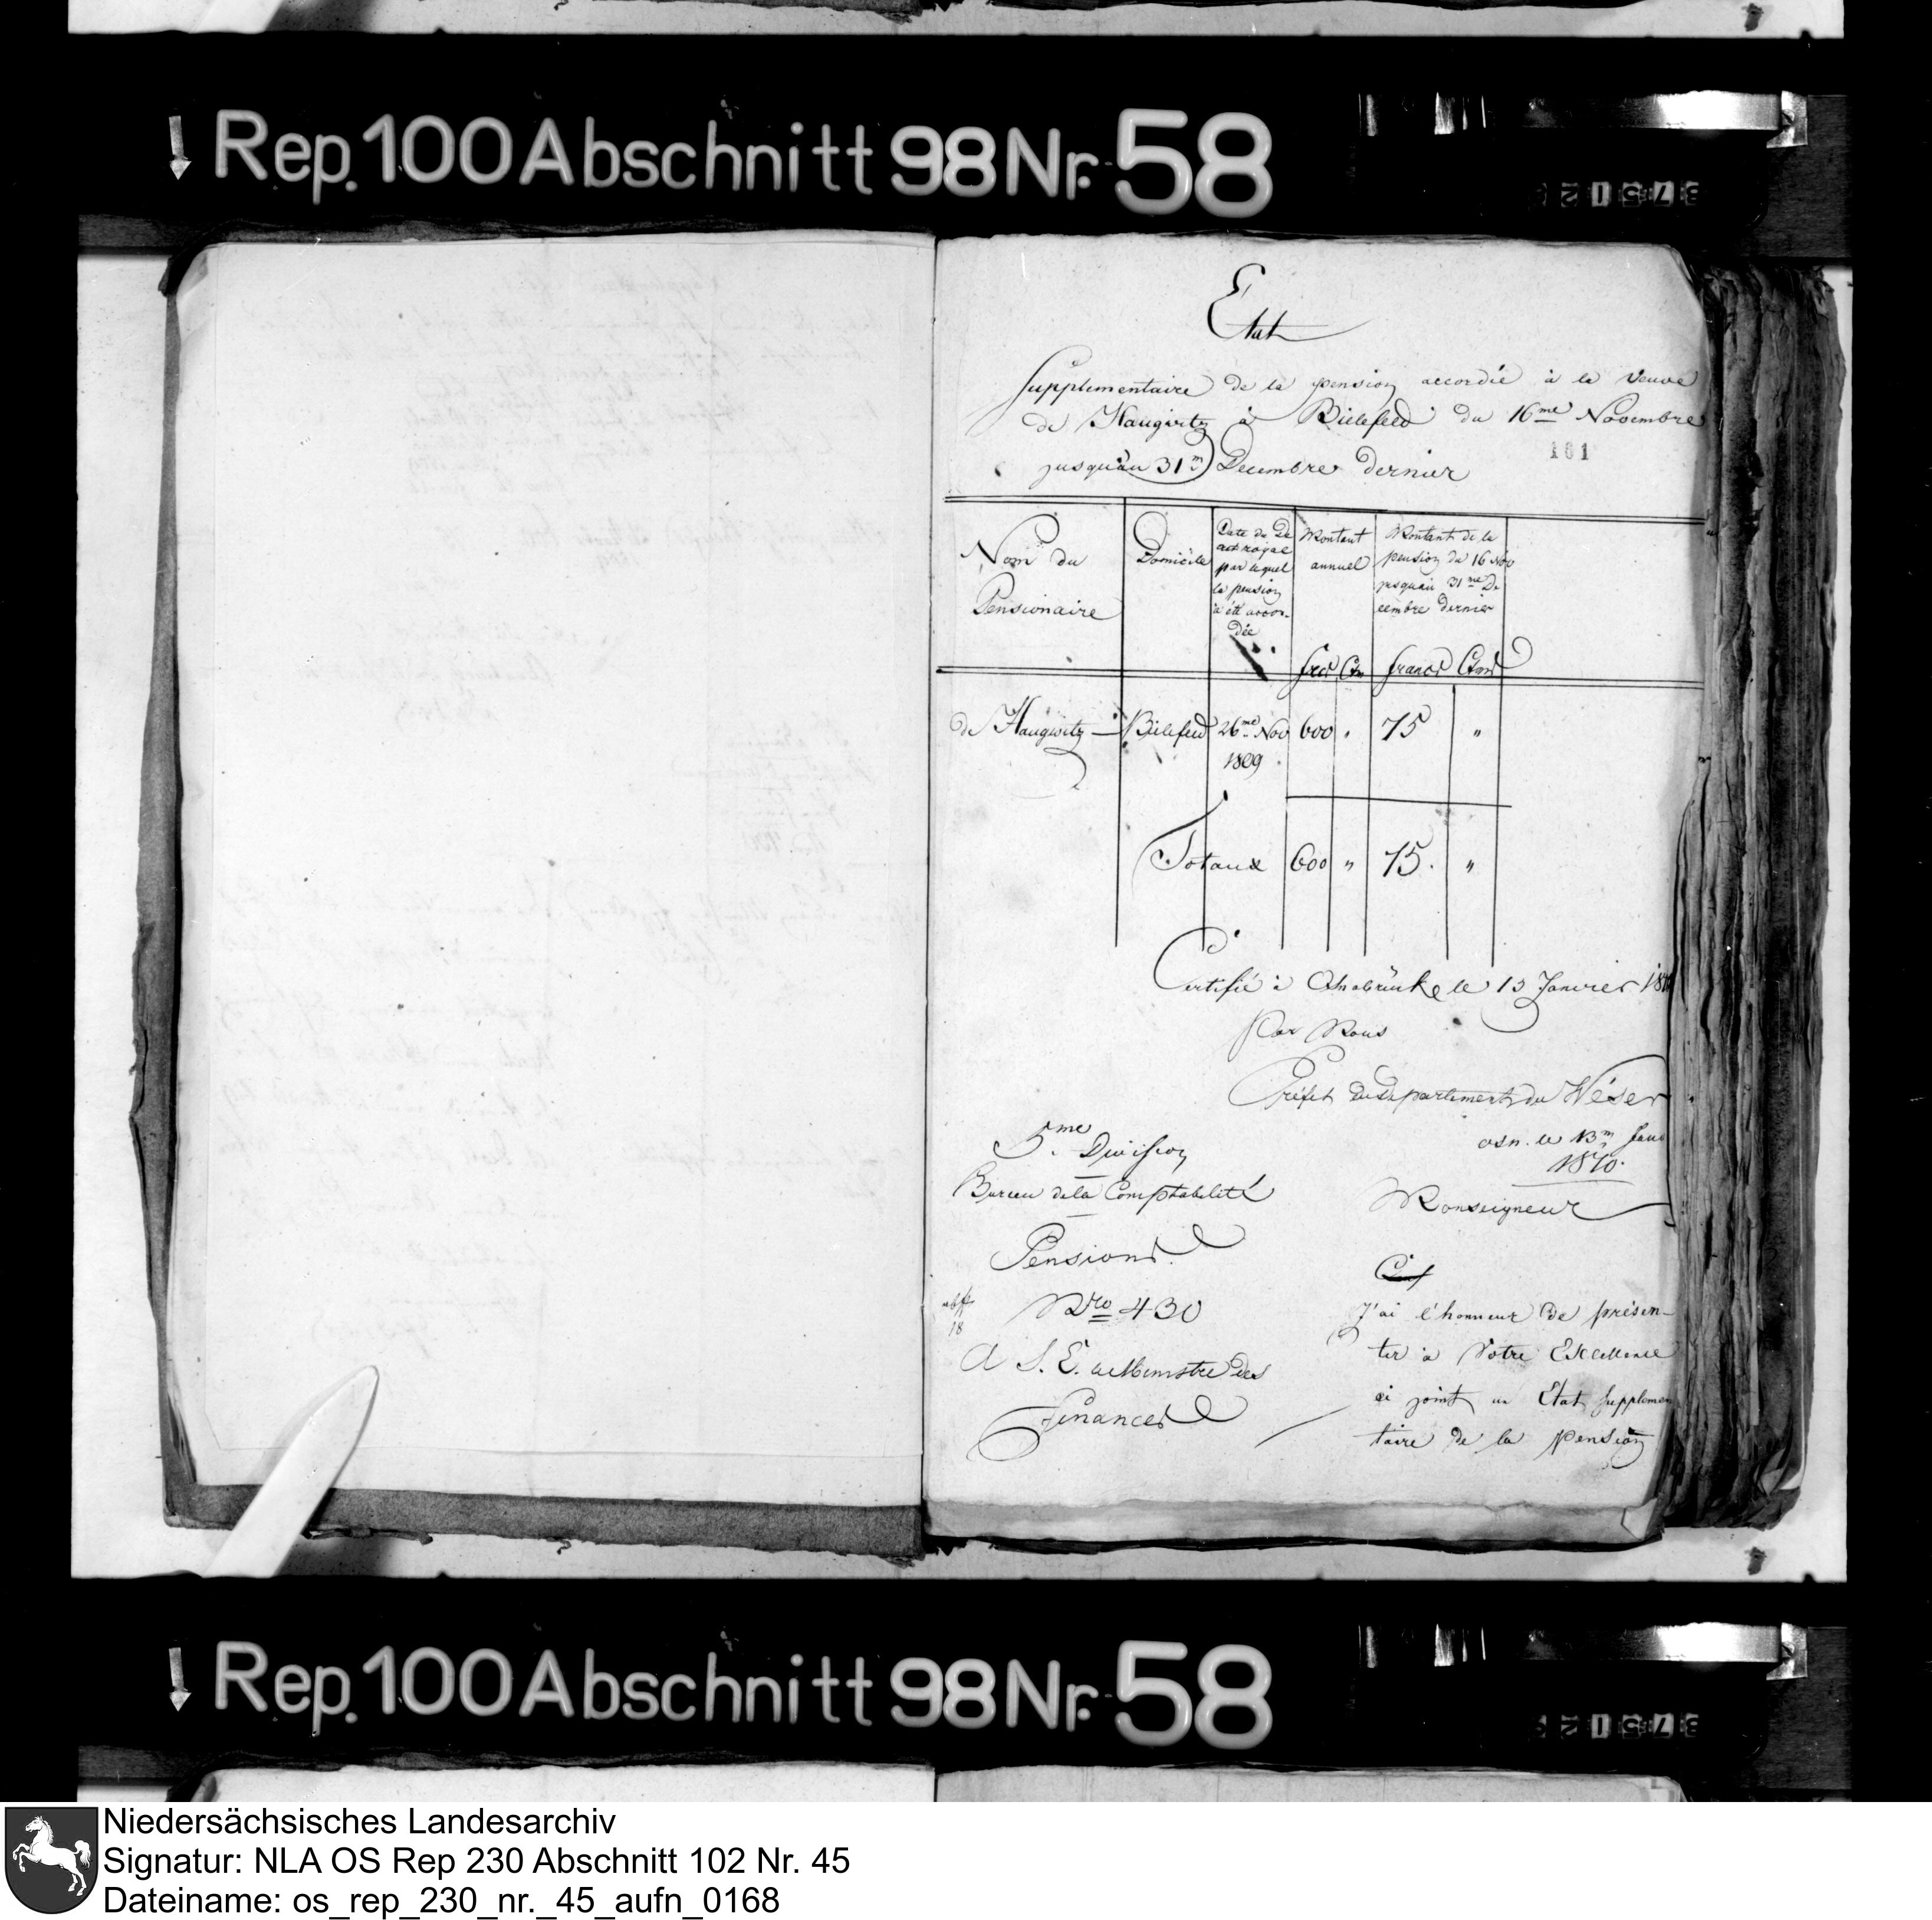 Rep. 100 Abschnitt 98 Nr. 58
Etat
Supplementaire de la pension accordée à la Veuve
de Haugwitz à Bielefeld du 16me Novembre
101
jusqu'au 31m Decembre dernier
Nom du
Pensionaire
Domicile
Date du De
cret royal
par lequel
la pension
a été accor-
dée
Montant
annuel
frcs Cts
Montant de la
pension du 16 Nov
jusquau 31me De
cembre dernier
francs Ctms
de Haugwitz — Bielefeld 26me Nov 600 " 75 "
1809
Totaux 600 " 75. "
Certifié à Osnabrück le 13 Janvier
Par Nous
Préfet du Departement du Wéser
5me Division
Bureau de la Comptabilité
Pensions.
Nro 430
A S. E. le Ministre des
Finances
osn. le 13m Janv
1810.
Monseigneur
J'ai l'honneur de présen-
ter à Votre Excellence
ci joint un Etat supplemen
taire de la pension
Rep. 100 Abschnitt 98 Nr. 58
Niedersächsisches Landesarchiv
Signatur: NLA OS Rep 230 Abschnitt 102 Nr. 45
Dateiname: os_rep_230_nr._45_aufn_0168